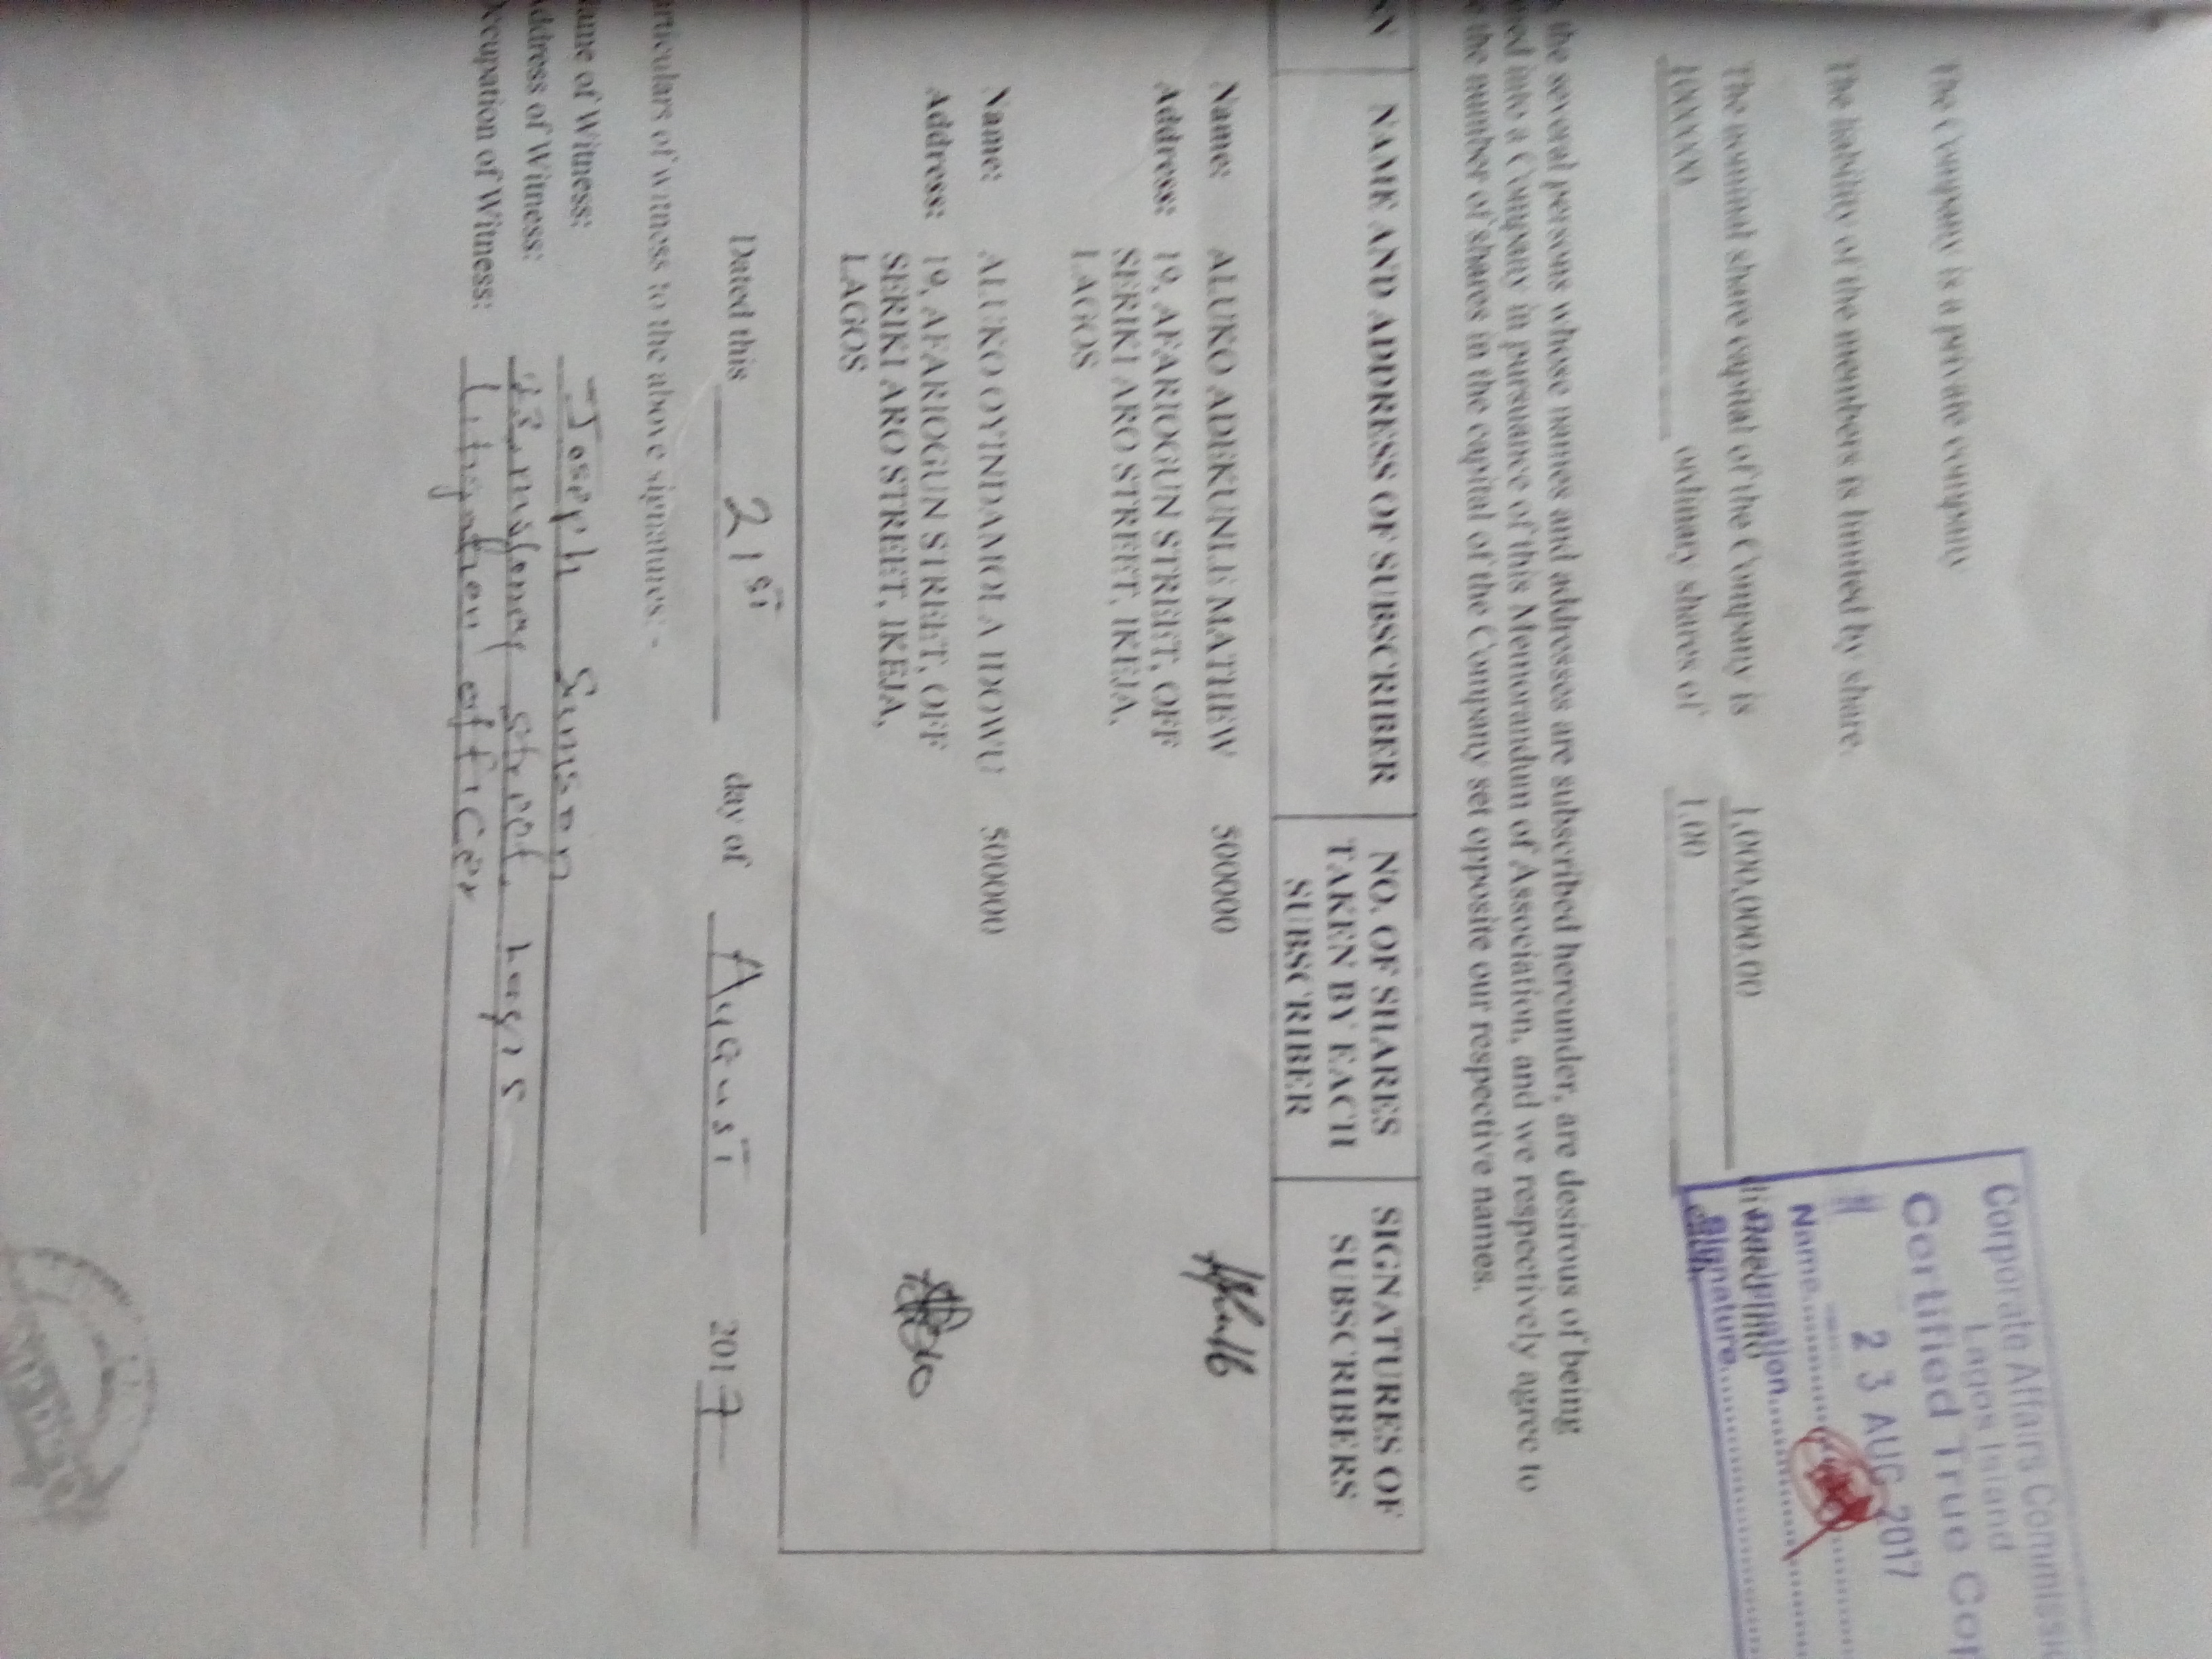 Corporate Affairs Commissi
Lagos Island
Certified True Cop
23 AUG 2017
Name
Designation
Signature
The Company is a private company
The liability of the members is limited by share.
The nominal share capital of the Company is 1,000,000.00 divided into
1000000 ordinary shares of 1.00 each.
the several persons whose names and addresses are subscribed hereunder, are desirous of being
med into a Company in pursuance of this Memorandum of Association, and we respectively agree to
the number of shares in the capital of the Company set opposite our respective names.
SN NAME AND ADDRESS OF SUBSCRIBER NO. OF SHARES TAKEN BY EACH SUBSCRIBER SIGNATURES OF SUBSCRIBERS
Name: ALUKO ADEKUNLE MATHEW 500000
Address: 19, AFARIOGUN STREET, OFF
SERIKI ARO STREET, IKEJA,
LAGOS
Name: ALUKO OYINDAMOLA IDOWU 500000
Address: 19, AFARIOGUN STREET, OFF
SERIKI ARO STREET, IKEJA,
LAGOS
Dated this 21ST day of August 2017
articulars of witness to the above signatures: -
ame of Witness: Joseph Samson
ddress of Witness: street, Lagos
Occupation of Witness: Litigation officer